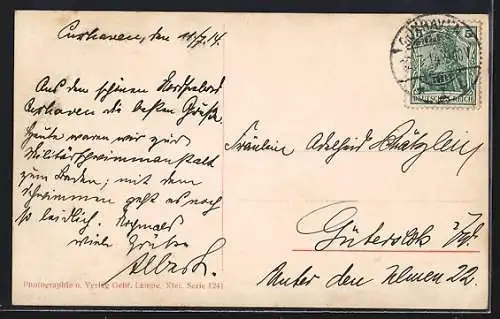 Cuxhaven, den 11/7.14.
Aus dem schönen Nordseebad
Cuxhaven die besten Grüße.
Heute waren wir zur
Militärschwimmanstalt
zum Baden; mit dem
schwimmen geht es noch
so leidlich. Nochmals
viele Grüße
Albert.
CUXHAVEN
DEUTSCHES REICH
Fräulein Adelheid
Gütersloh i/W.
Unter den Ulmen 22.
Photographie u. Verlag Gebr. Lempe, Kiel. Serie 1241